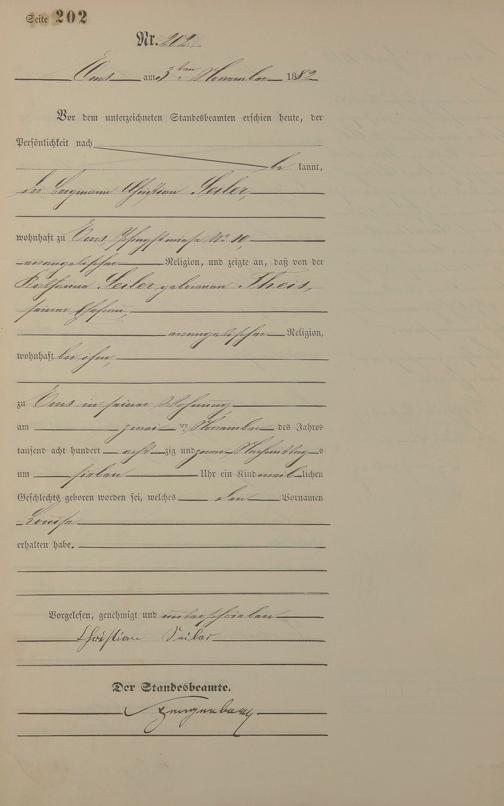 Seite 202
Nr. 202
Ems am 3ten November 1882
Vor dem unterzeichneten Standesbeamten erschien heute, der
Persönlichkeit nach
be kannt,
der Bergmann Christian Seiler,
wohnhaft zu Ems, No 10,
evangelischer Religion, und zeigte an, daß von der
Seiler geborenen Theis,
seiner Ehefrau,
evangelischer Religion,
wohnhaft bei ihm,
zu Ems in seiner Wohnung
am zweiten November des Jahres
tausend acht hundert acht zig und zwei Nachmittags
um sieben Uhr ein Kind weib lichen
Geschlechts geboren worden sei, welches den Vornamen
Louise
erhalten habe.
Vorgelesen, genehmigt und unterschrieben
Christian Seiler
Der Standesbeamte.